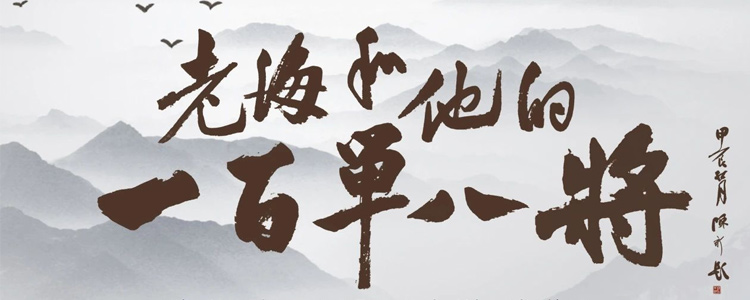 老海和他的
一百单八將
甲辰
月